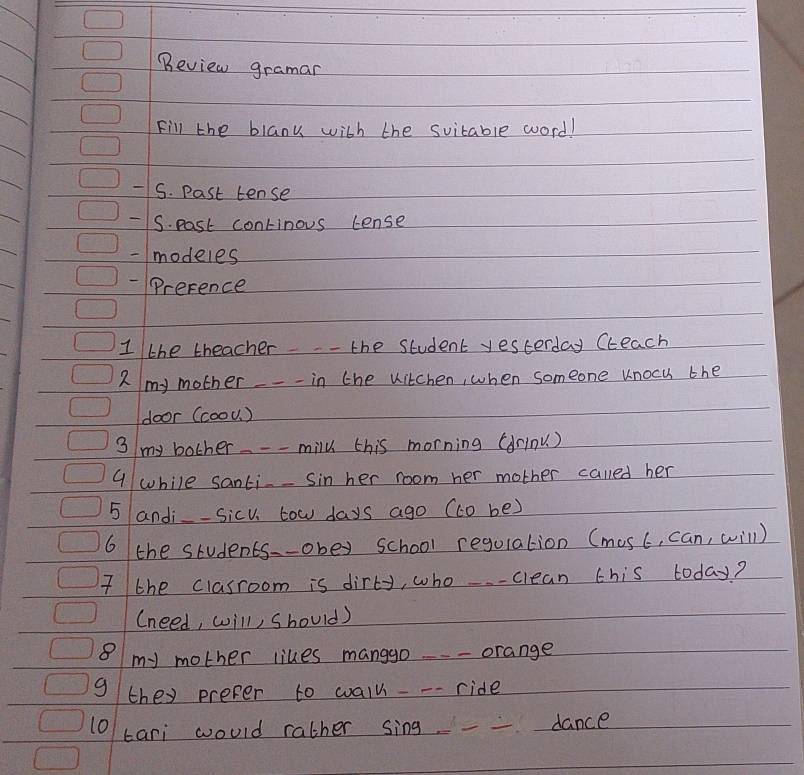 Review gramar
Fill the blank with the suitable word!
- S. Past tense
- S. Past continous tense
- modeles
- Preference
1 the theacher - - - the student yesterday (teach
2 my mother - - - in the kitchen, when someone knock the
door (cook)
3 my bother - - - milk this morning (drink)
4 while santi - - Sin her room her mother called her
5 andi - - sick tow days ago (to be)
6 the students - - obey school regulation (must, can, will)
7 the clasroom is dirty, who - - - clean this today?
(need, will, should)
8 my mother likes manggo - - - orange
9 they prefer to walk - - - ride
10 tari would rather sing - - - dance